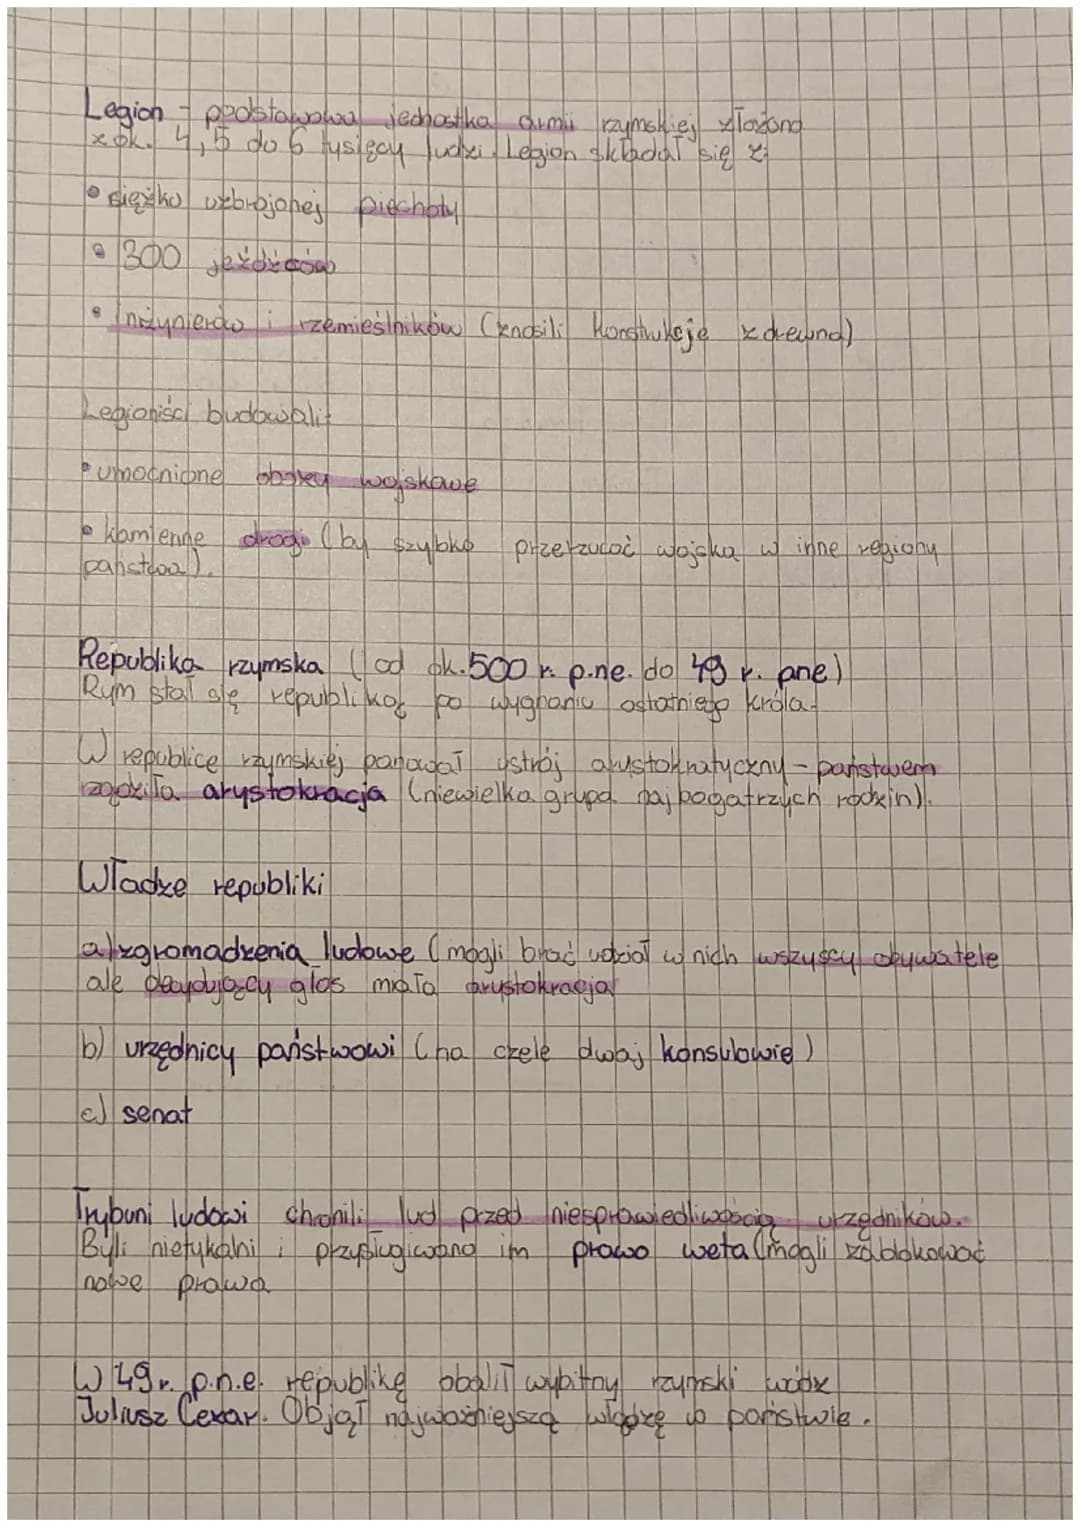 Legion - podstawowa jednostka armii rzymskiej złożona
z ok. 4,5 do 6 tysięcy ludzi. Legion składał się z:
• ciężko uzbrojonej piechoty
• 300 jeźdźców
• inżynierów i rzemieślników (znosili konstrukcje z drewna)
Legioniści budowali:
• umocnione obozy wojskowe
• kamienne drogi (by szybko przerzucać wojska w inne regiony
państwa).
Republika rzymska (od ok. 500 r. p.n.e. do 49 r. pne)
Rym stał się republiką po wygnaniu ostatniego króla.
W republice rzymskiej panował ustrój arystokratyczny - państwem
rządziła arystokracja (niewielka grupa najbogatrzych rodzin).
Władze republiki
a) zgromadzenia ludowe (mogli brać udział w nich wszyscy obywatele
ale decydujący głos miała arystokracja)
b) urzędnicy państwowi (na czele dwaj konsulowie)
c) senat
Trybuni ludowi chronili lud przed niesprawiedliwością urzędników.
Byli nietykalni i przysługiwano im prawo weta (mogli zablokować
nowe prawa
W 49 r. p.n.e. republikę obalił wybitny rzymski wódz
Juliusz Cezar. Objął najważniejszą władzę w państwie.